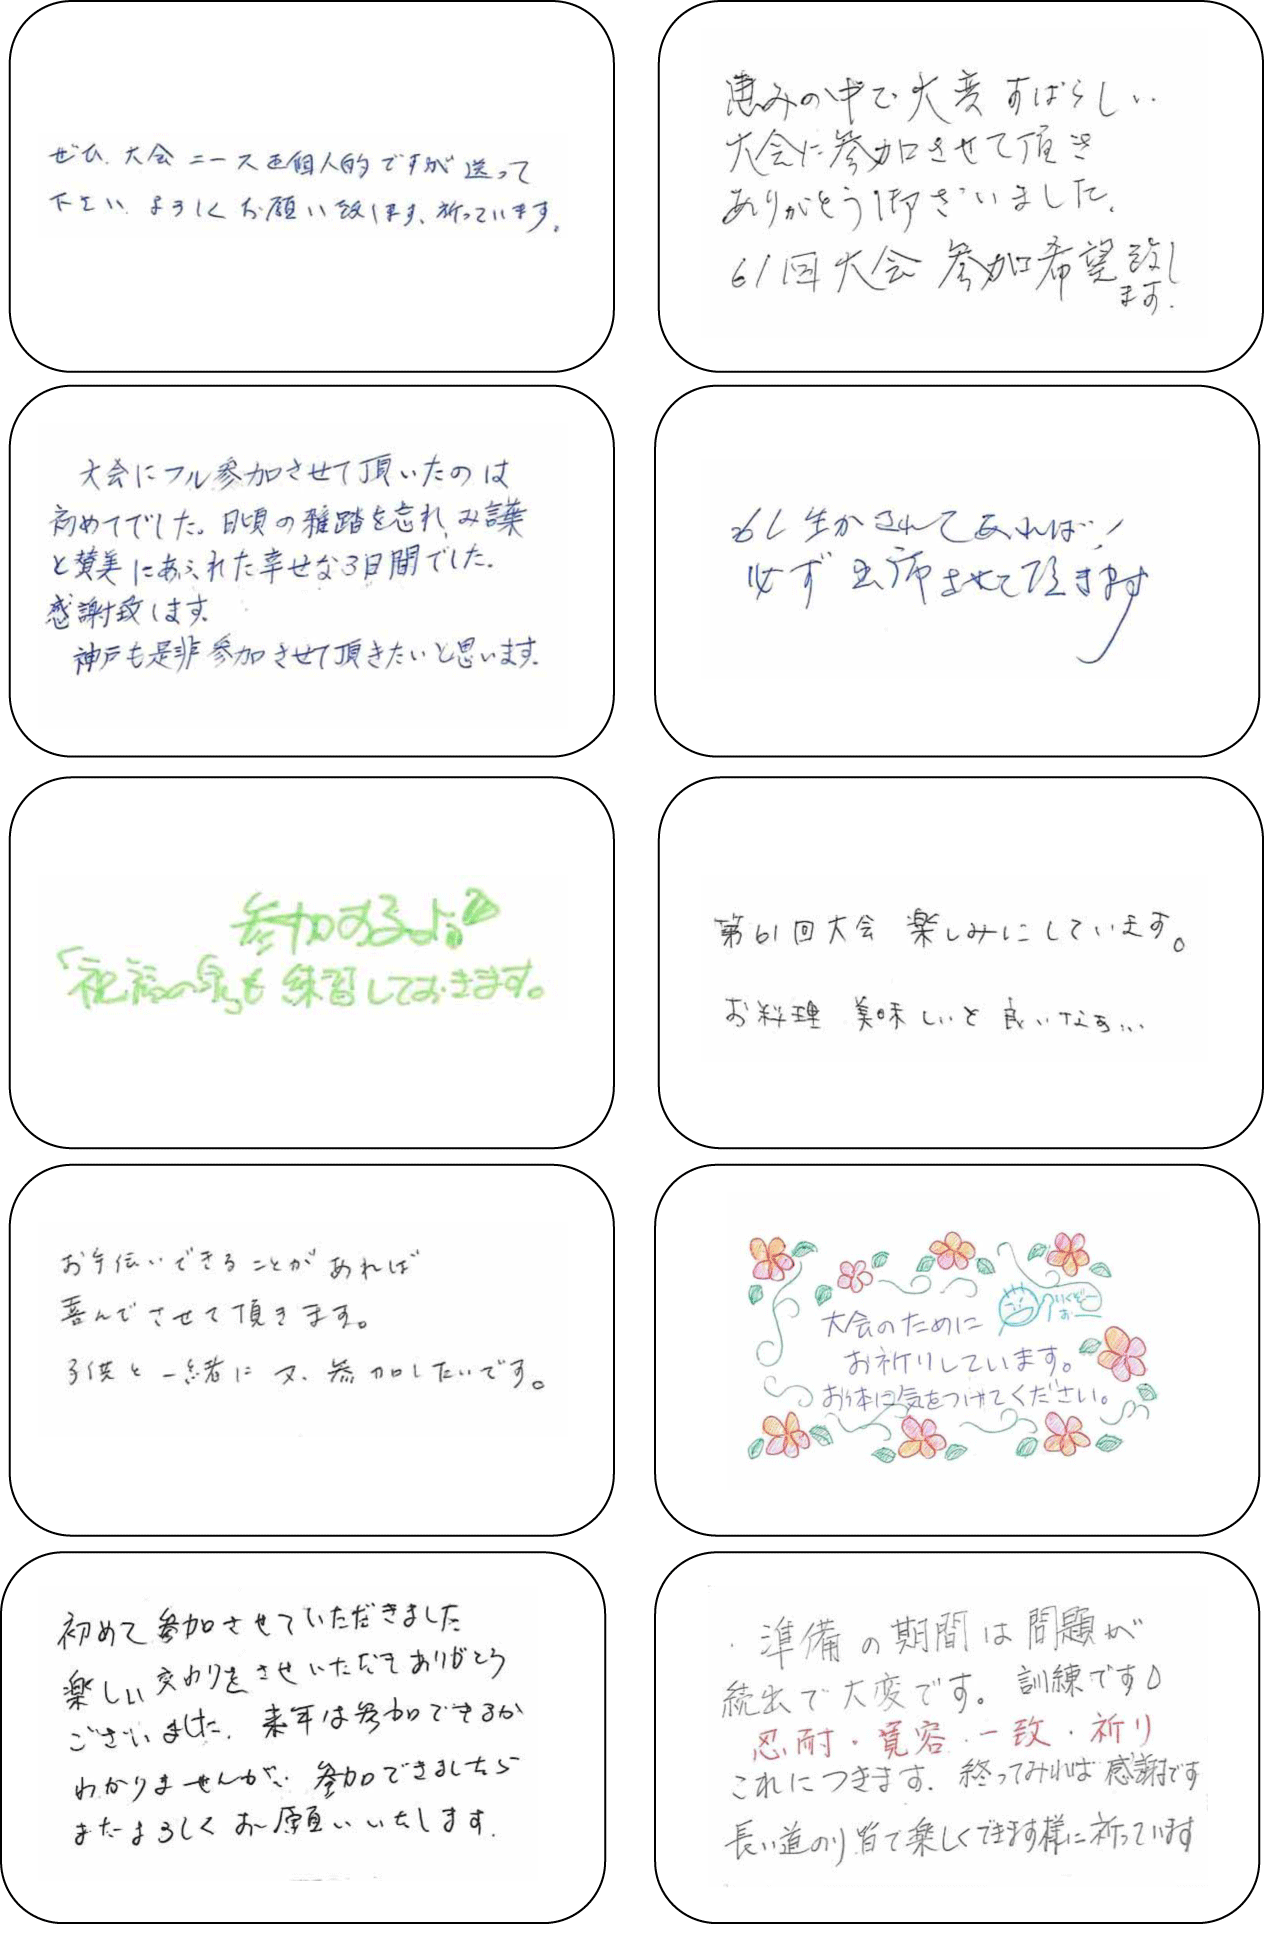 ぜひ、大会ニースを個人的ですが送って
下さい。よろしくお願い致します、祈っています。
恵みの中で大変すばらしい
大会に参加させて頂き
ありがとう御ざいました。
61回大会参加希望致し
ます.
大会にフル参加させて頂いたのは
初めてでした。日頃の雑踏を忘れ、み言葉
と賛美にあふれた幸せな3日間でした.
感謝致します.
神戸も是非参加させて頂きたいと思います.
もし生かされてあれば!
必ず出席させて頂きます
参加するよ
「祝福の泉」も練習しておきます。
第61回大会 楽しみにしています。
お料理 美味しいと良いなぁ...
お手伝いできることがあれば
喜んでさせて頂きます。
子供と一緒に又、参加したいです。
いくぞー
おー
大会のために
お祈りしています。
お体に気をつけてください。
初めて参加させていただきました
楽しい交わりをさせいただきありがとう
ございました. 来年は参加できるか
わかりませんが、参加できましたら
またよろしくお願いいたします.
・準備の期間は問題が
続出で大変です。訓練です♪
忍耐・寛容・一致・祈り
これにつきます. 終ってみれば感謝です
長い道のり皆で楽しくできます様に祈っています